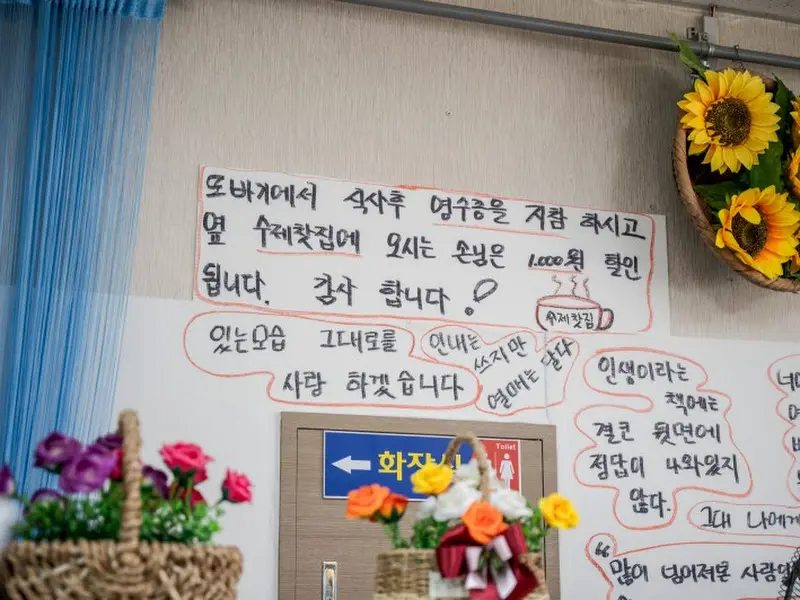 또바기에서 식사후 영수증을 지참 하시고
옆 수제찻집에 오시는 손님은 1.000원 할인
됩니다. 감사 합니다!
수제찻집
있는모습 그대로를
사랑 하겠습니다
인내는
쓰지만
열매는 달다
인생이라는
책에는
결코 뒷면에
정답이 나와있지
않다.
그대 나에게
"많이 넘어져본 사람만
화장실
Toilet